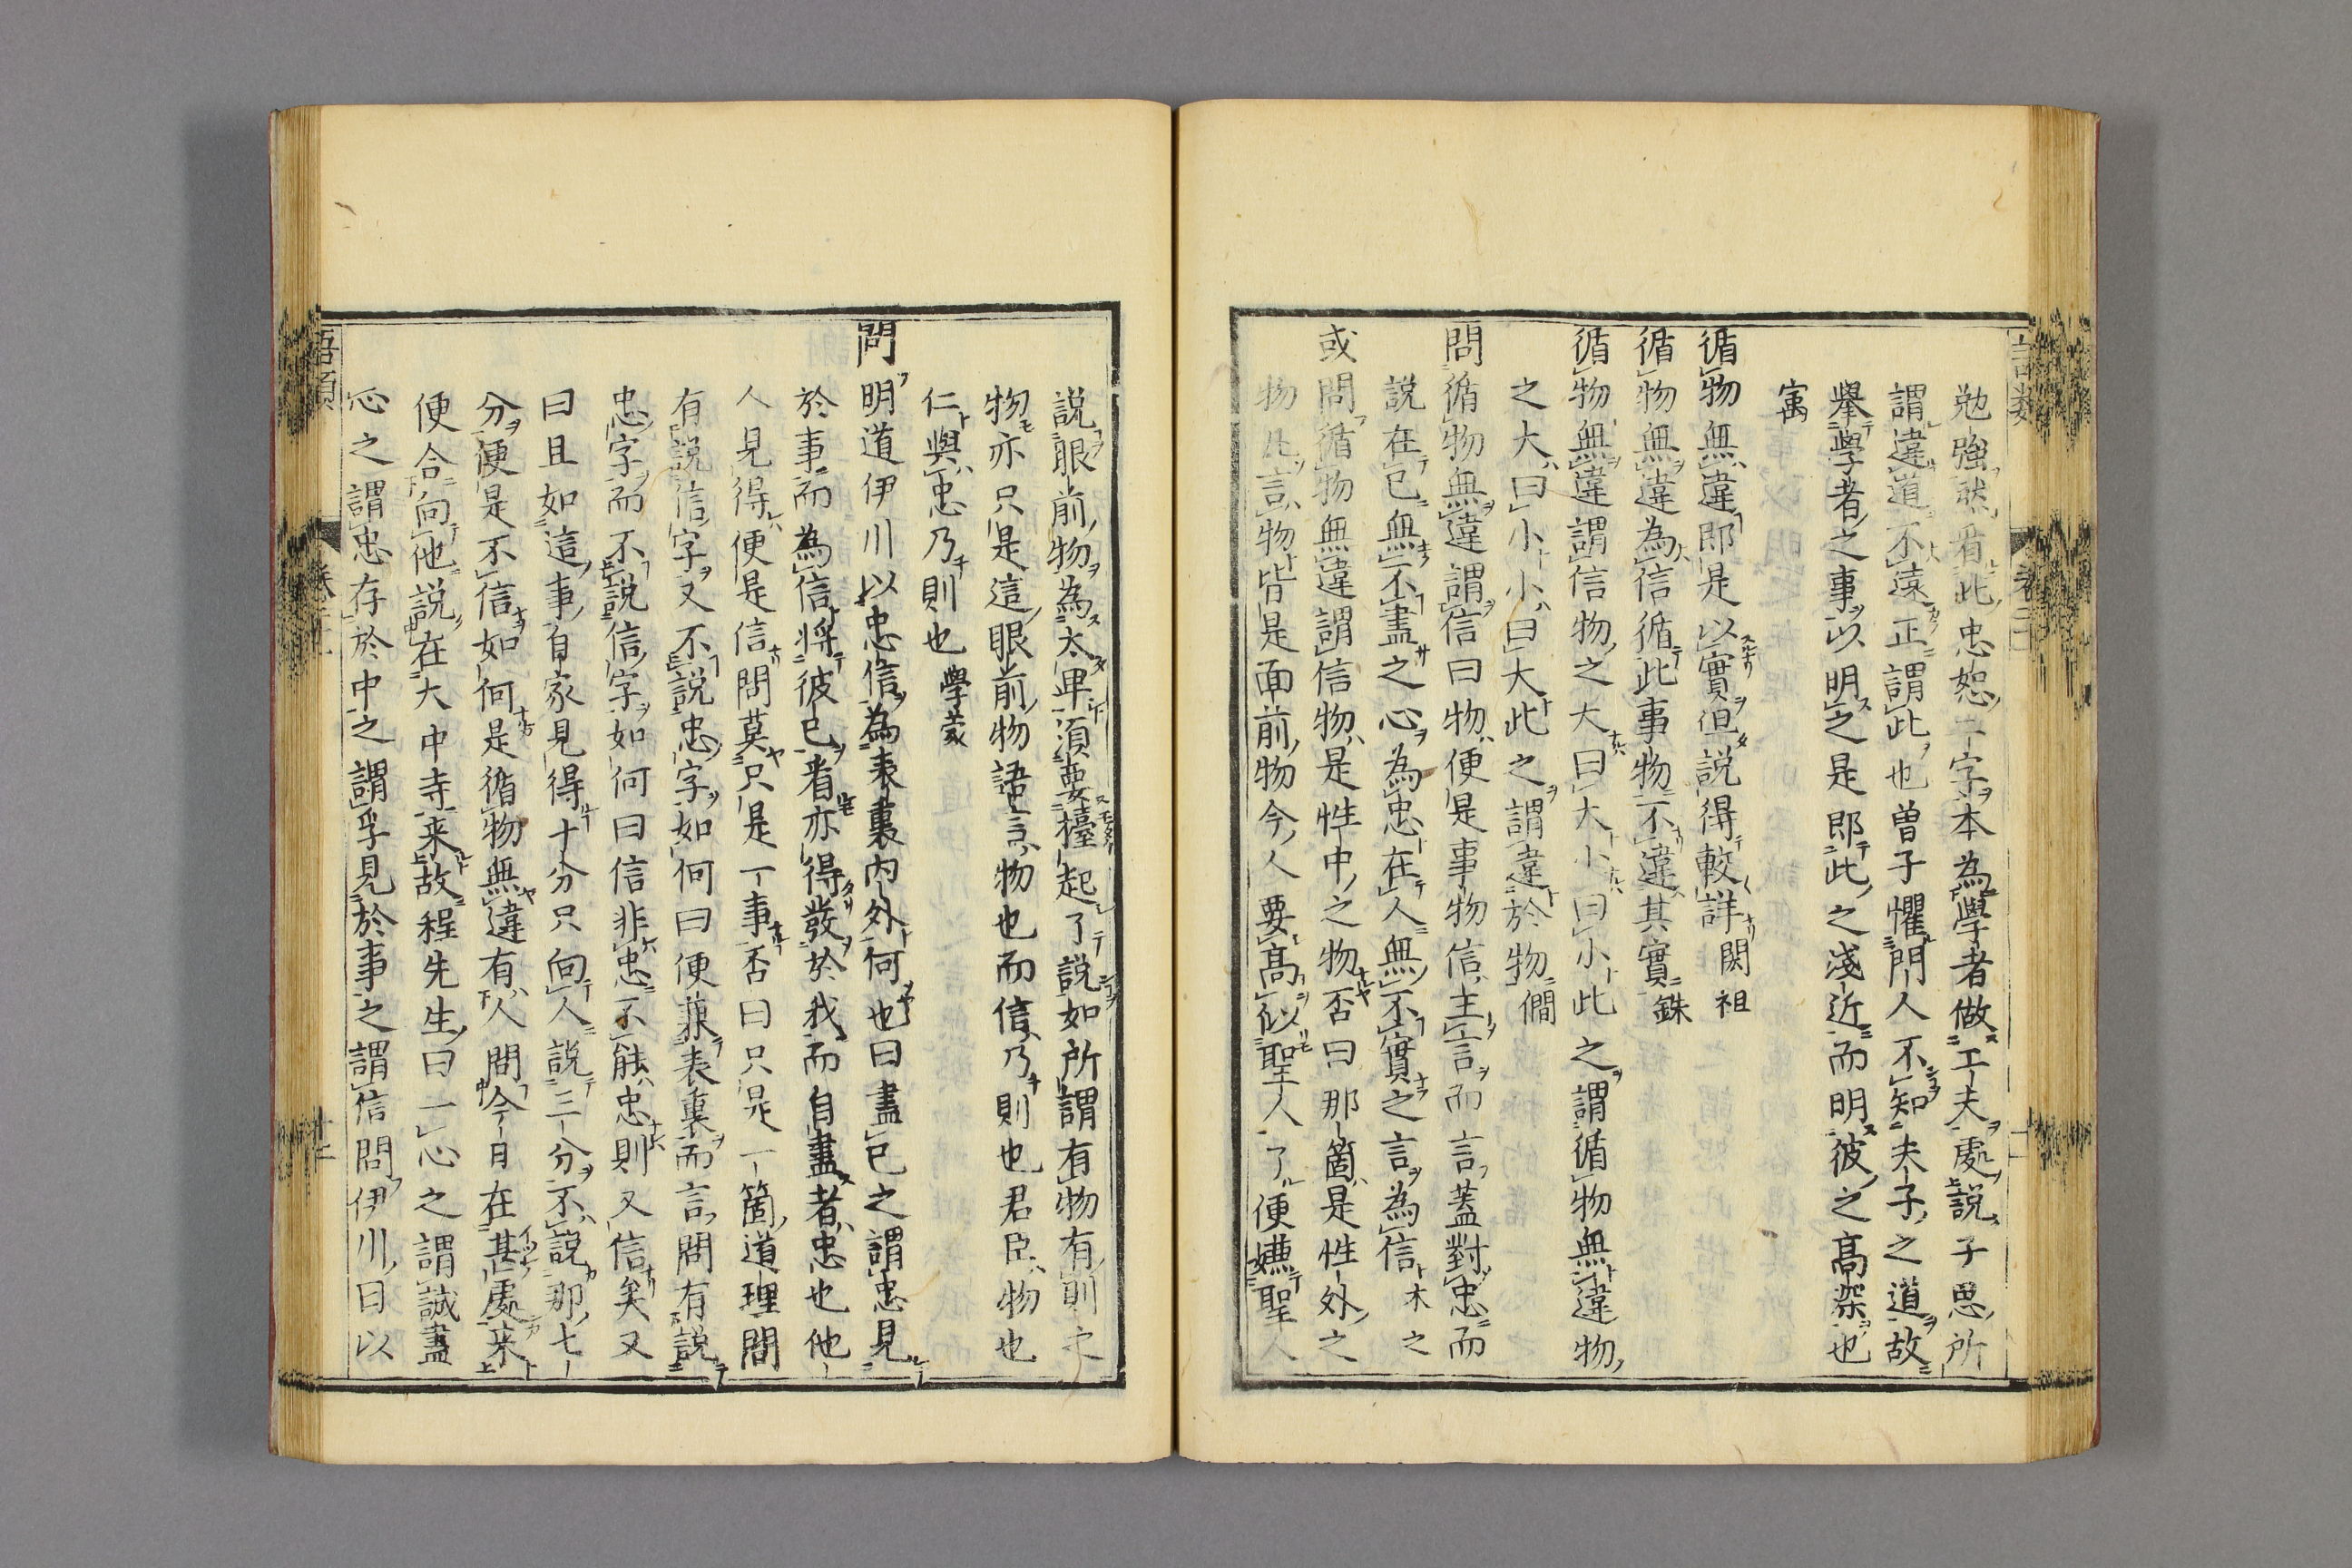 語類
卷二十一
十一
勉強然看此忠恕二字本為學者做工夫處說子思所
謂違道不遠正謂此也曾子懼門人不知夫子之道故
舉學者之事以明之是即此之淺近而明彼之高深也
㝢
循物無違即是以實但說得較詳閎祖
循物無違為信循此事物不違其實銖
循物無違謂信物之大曰大小曰小此之謂循物無違物
之大曰小小曰大此之謂違於物僩
問循物無違謂信曰物便是事物信主言而言蓋對忠而
說在己無不盡之心為忠在人無不實之言為信木之
或問循物無違謂信物是性中之物否曰那箇是性外之
物凡言物皆是面前物今人要高似聖人了便嫌聖人
說眼前物為太卑須要擡起了說如所謂有物有則之
物亦只是這眼前物語言物也而信乃則也君臣物也
仁與忠乃則也學蒙
問明道伊川以忠信為表裏内外何也曰盡己之謂忠見
於事而為信將彼己看亦得發於我而自盡者忠也他
人見得便是信問莫只是一事否曰只是一箇道理問
有說信字又不說忠字如何曰便兼表裏而言問有說
忠字而不說信字如何曰信非忠不能忠則又信矣又
曰且如這事自家見得十分只向人說三分不說那七
分便是不信如何是循物無違有人問今日在甚處来
便合向他說在大中寺来故程先生曰一心之謂誠盡
心之謂忠存於中之謂孚見於事之謂信問伊川曰以
語類
卷二十一
十二